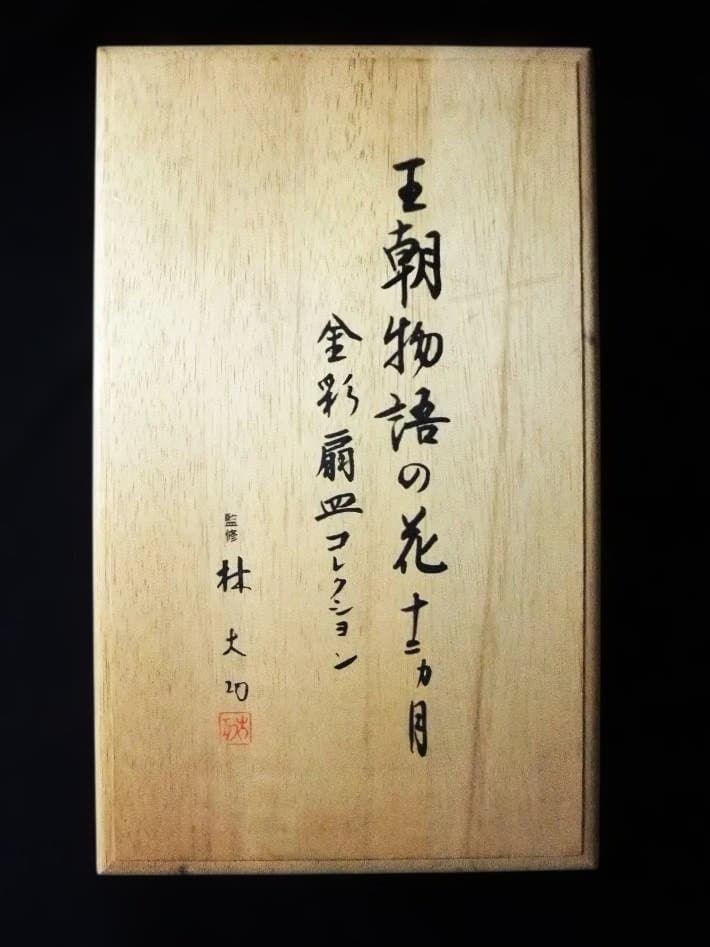 王朝物語の花十二カ月
金彩扇皿コレクション
監修 林大功